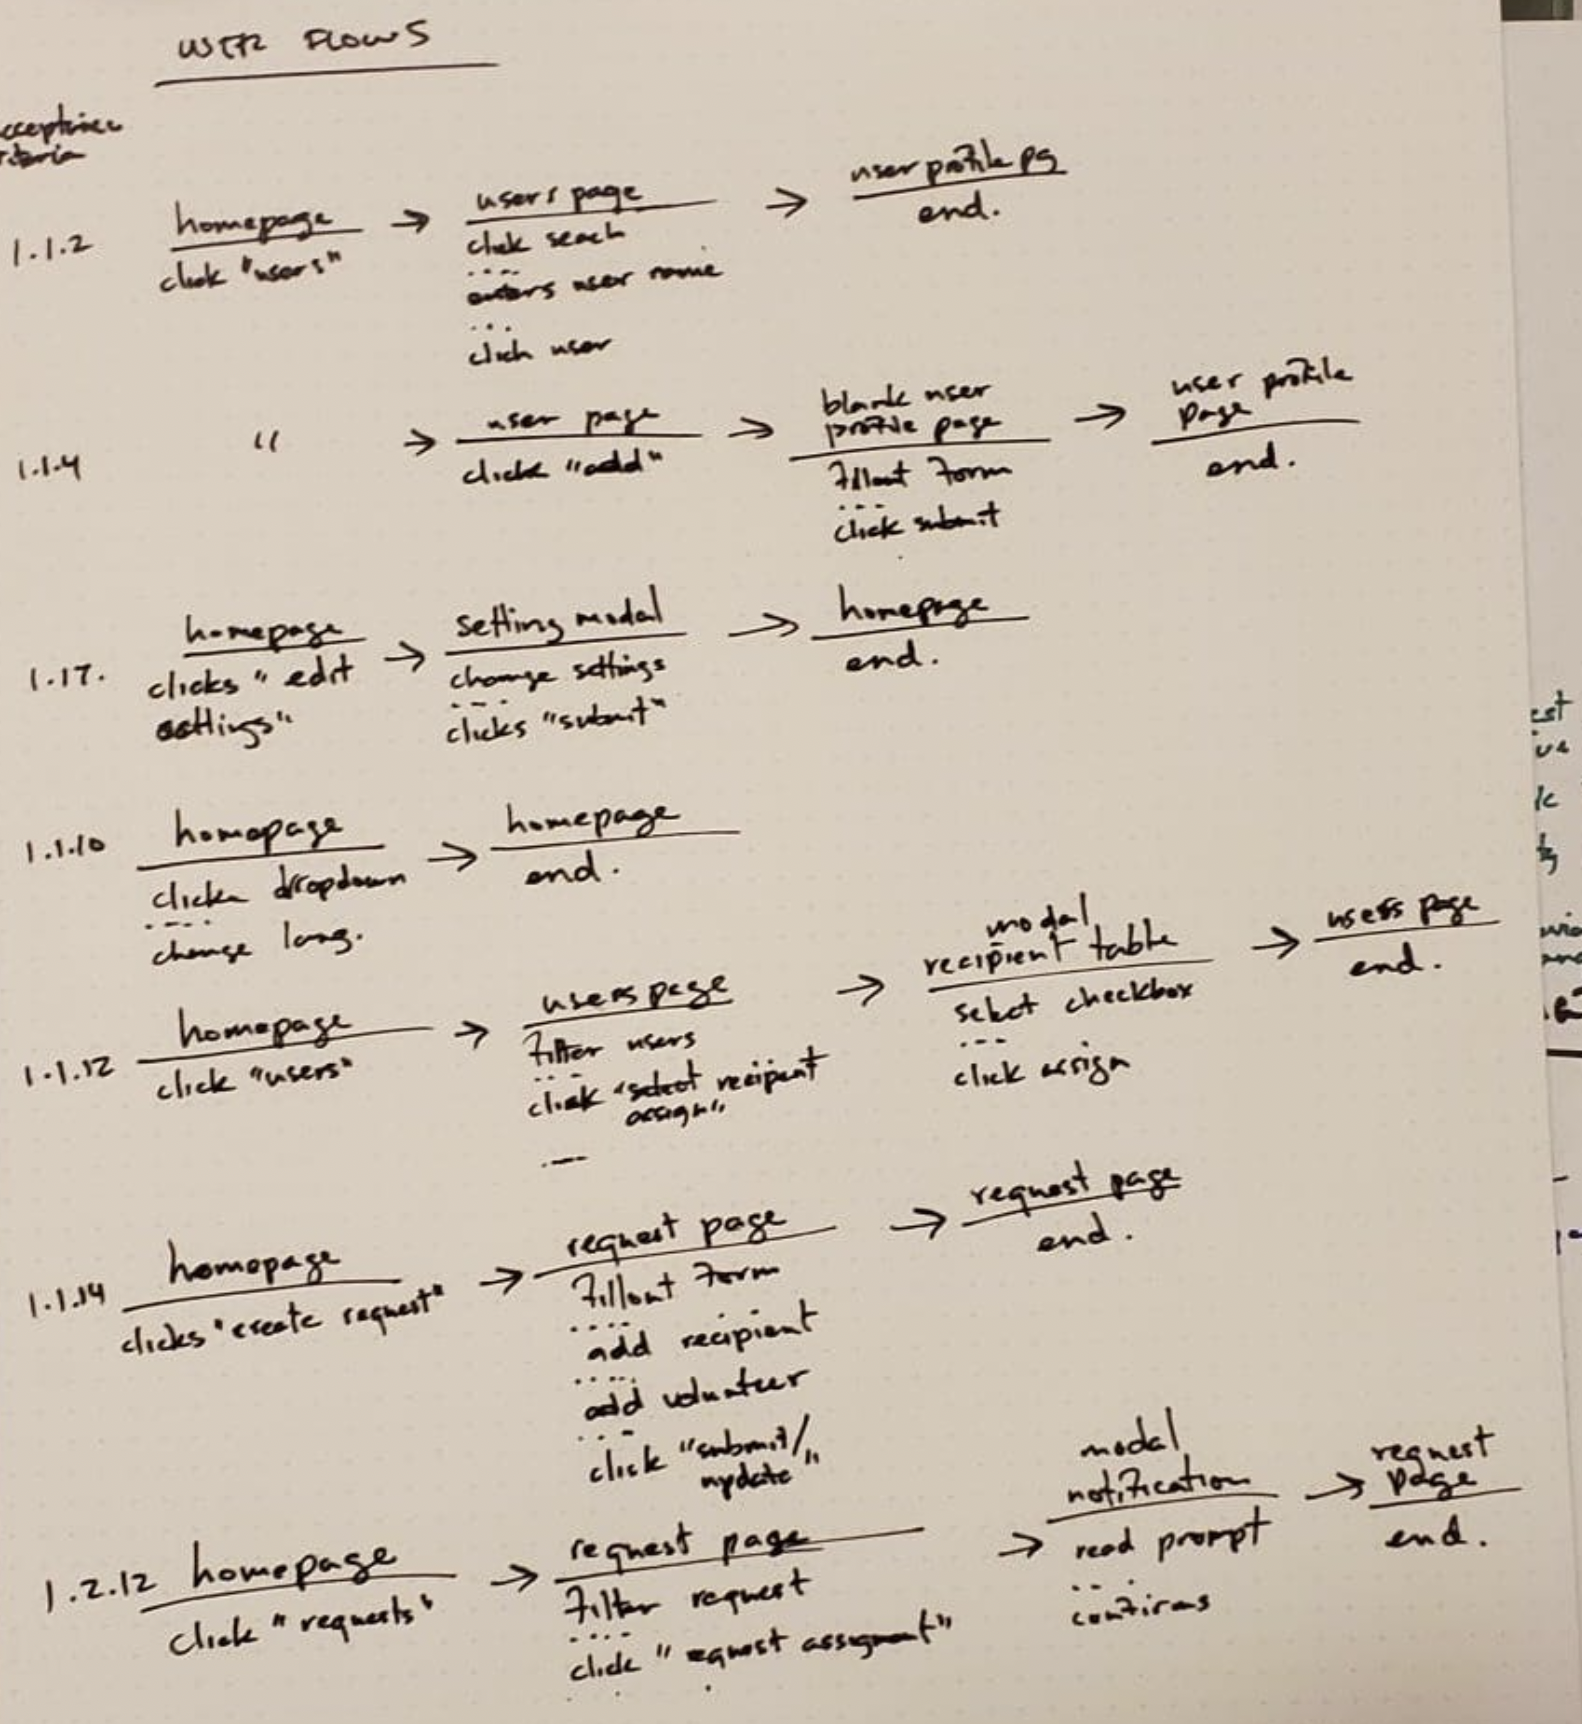 USER FLOWS
cceptance
riteria
1.1.2
homepage
click "users"
→
users page
click seach
enters user name
click user
→
user profile pg
end.
1.1.4
"
→
user page
click "add"
→
blank user
profile page
fillout form
click submit
→
user profile
page
end.
1.17.
homepage
clicks "edit
settings"
→
setting modal
change settings
clicks "submit"
→
homepage
end.
1.1.10
homepage
click dropdown
change lang.
→
homepage
end.
1.1.12
homepage
click "users"
→
users page
filter users
click "select recipient
assign"
→
modal
recipient table
select checkbox
click assign
→
users page
end.
1.1.14
homepage
clicks "create request"
→
request page
fillout form
add recipient
add volunteer
click "submit/
update"
→
request page
end.
1.2.12
homepage
click "requests"
→
request page
filter request
click "equest assignment"
→
modal
notification
read prompt
confirms
→
request
page
end.
est
ve